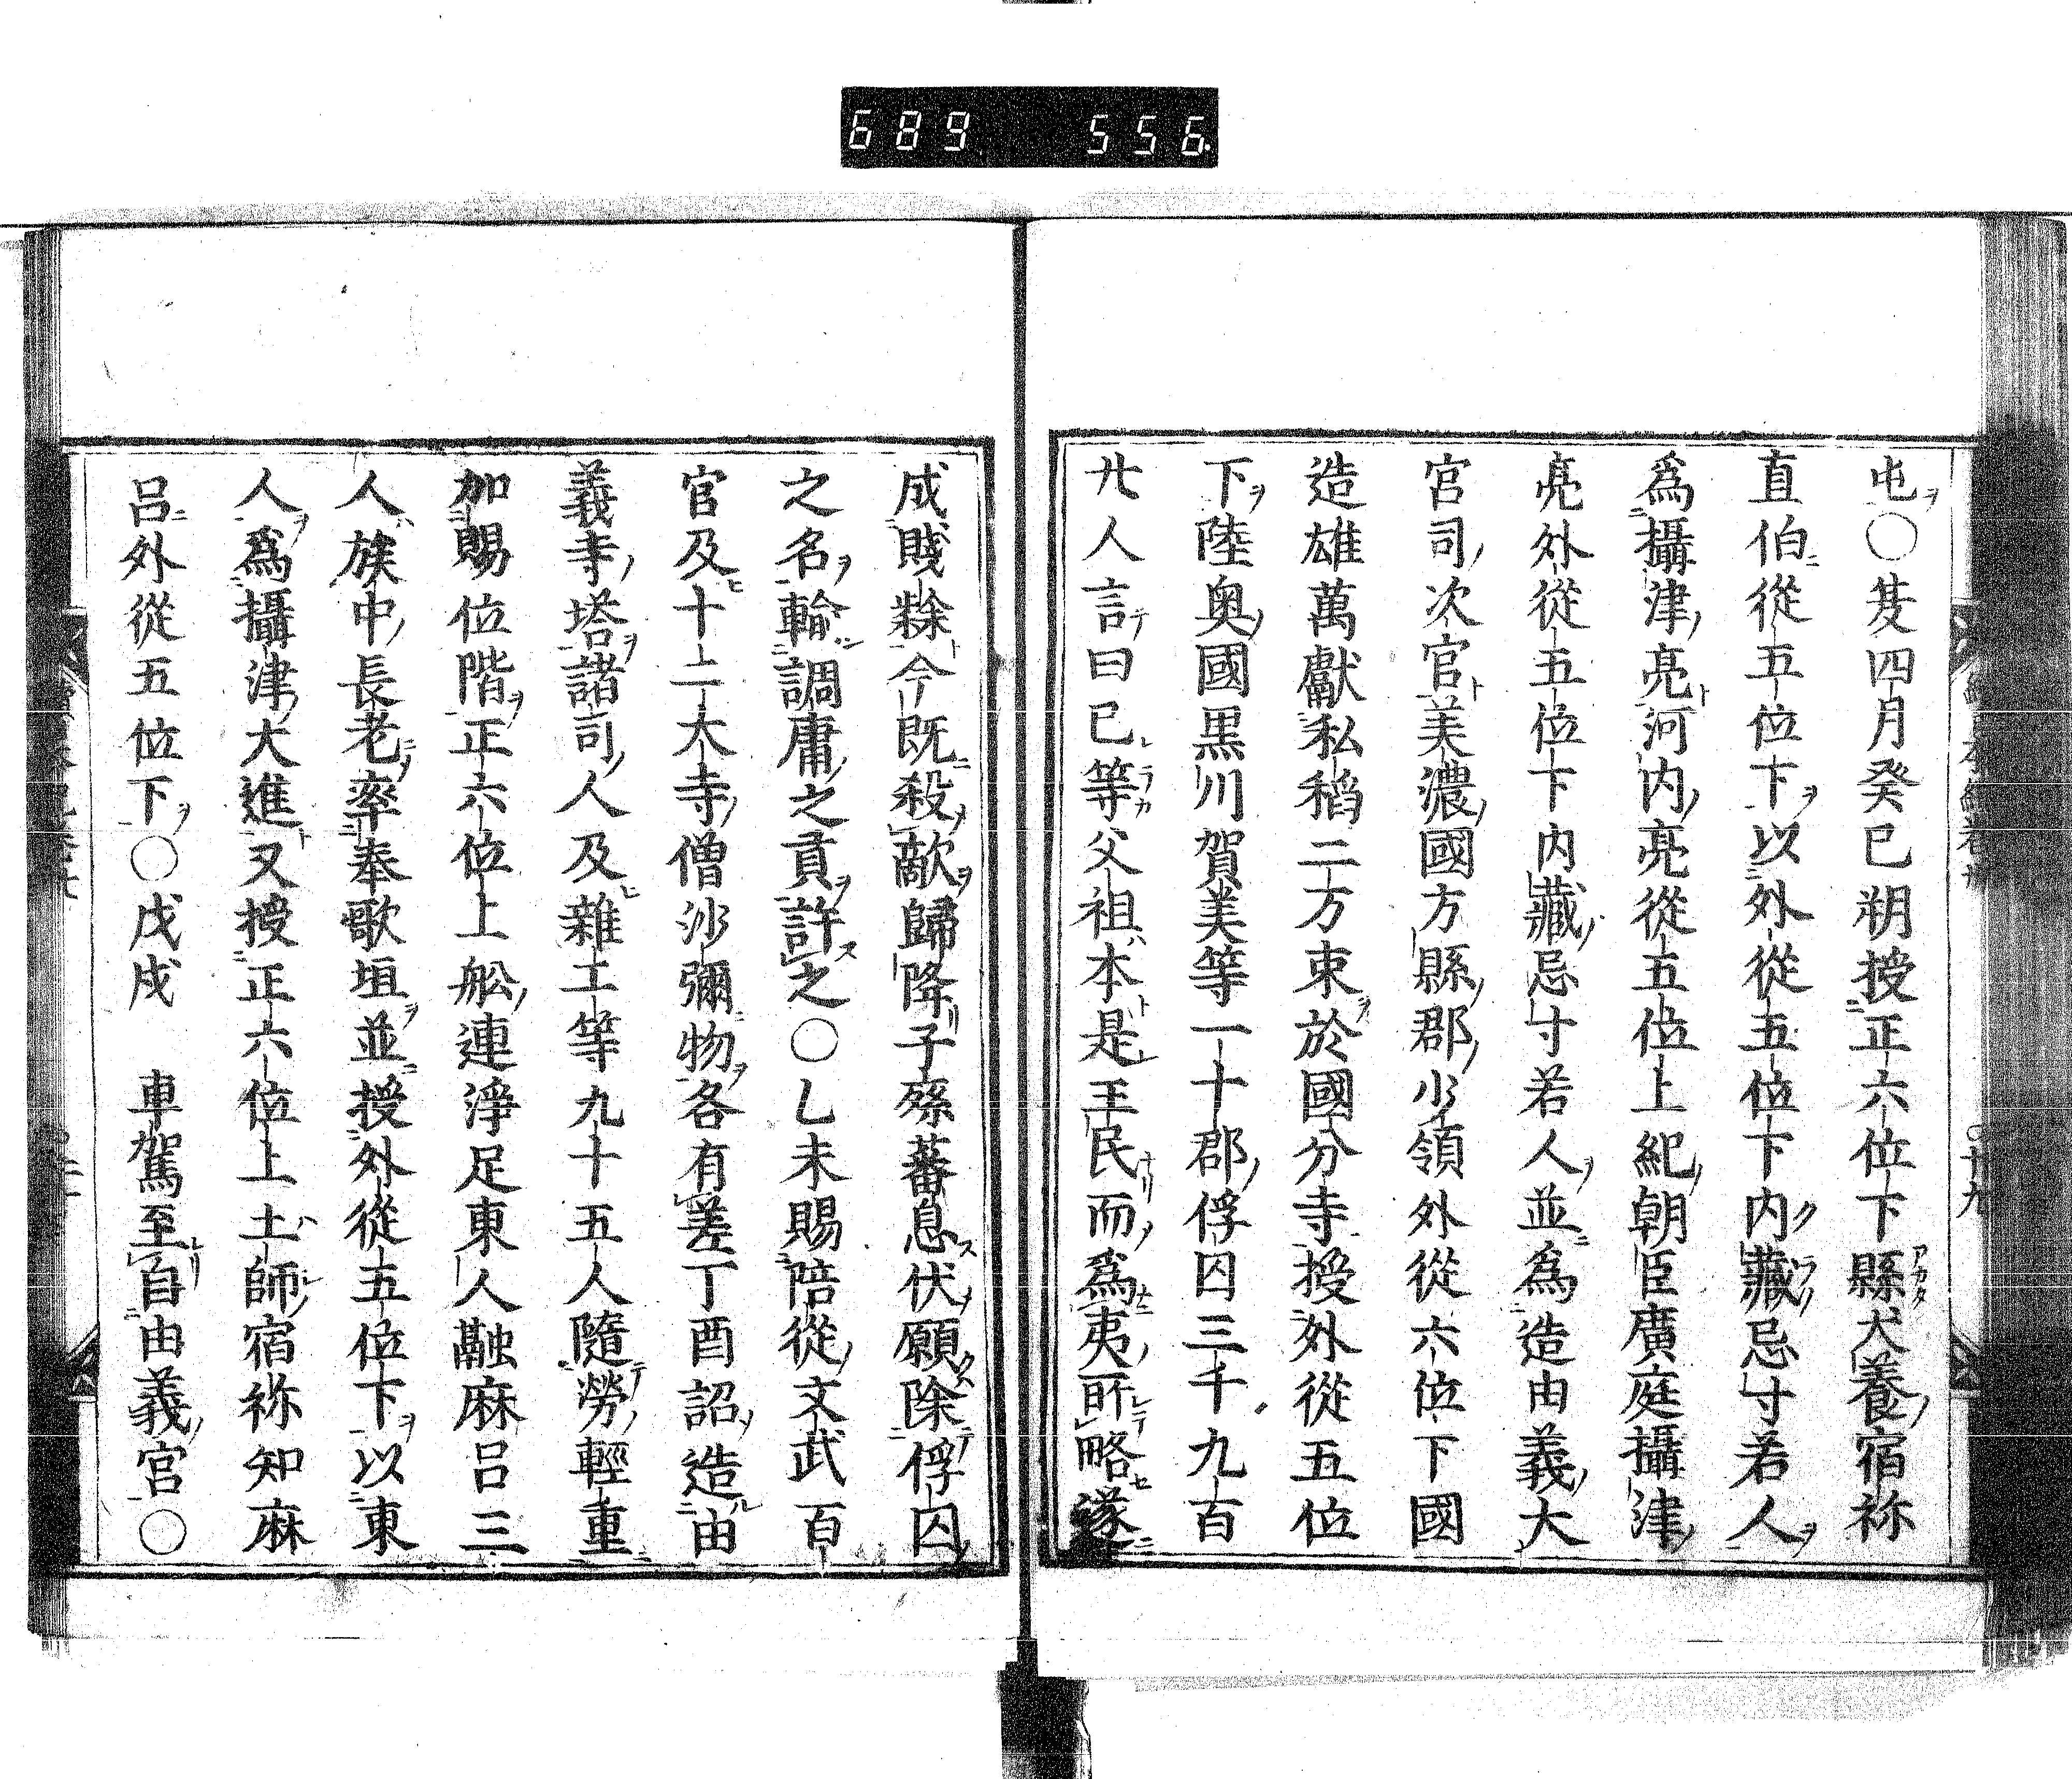 689 556
屯○夏四月癸巳朔授正六位下縣犬養宿祢
直伯從五位下以外從五位下内藏忌寸若人
爲攝津亮河内亮從五位上紀朝臣廣庭攝津
亮外從五位下内藏忌寸若人並爲造由義大
宮司次官美濃國方縣郡少領外從六位下國
造雄萬獻私稻二万束於國分寺授外從五位
下陸奥國黒川賀美等一十郡俘囚三千九百
廿人言曰已等父祖本是王民而爲夷所略遂
成賤隸今既殺敵歸降子孫蕃息伏願除俘囚
之名輸調庸之貢許之○乙未賜陪從文武百
官及十二大寺僧沙彌物各有差丁酉詔造由
義寺塔諸司人及雜工等九十五人隨勞輕重
加賜位階正六位上舩連淨足東人䖝麻呂三
人族中長老率奉歌垣並授外從五位下以東
人爲攝津大進又授正六位上土師宿祢知麻
呂外從五位下○戊戌　車駕至自由義宮○